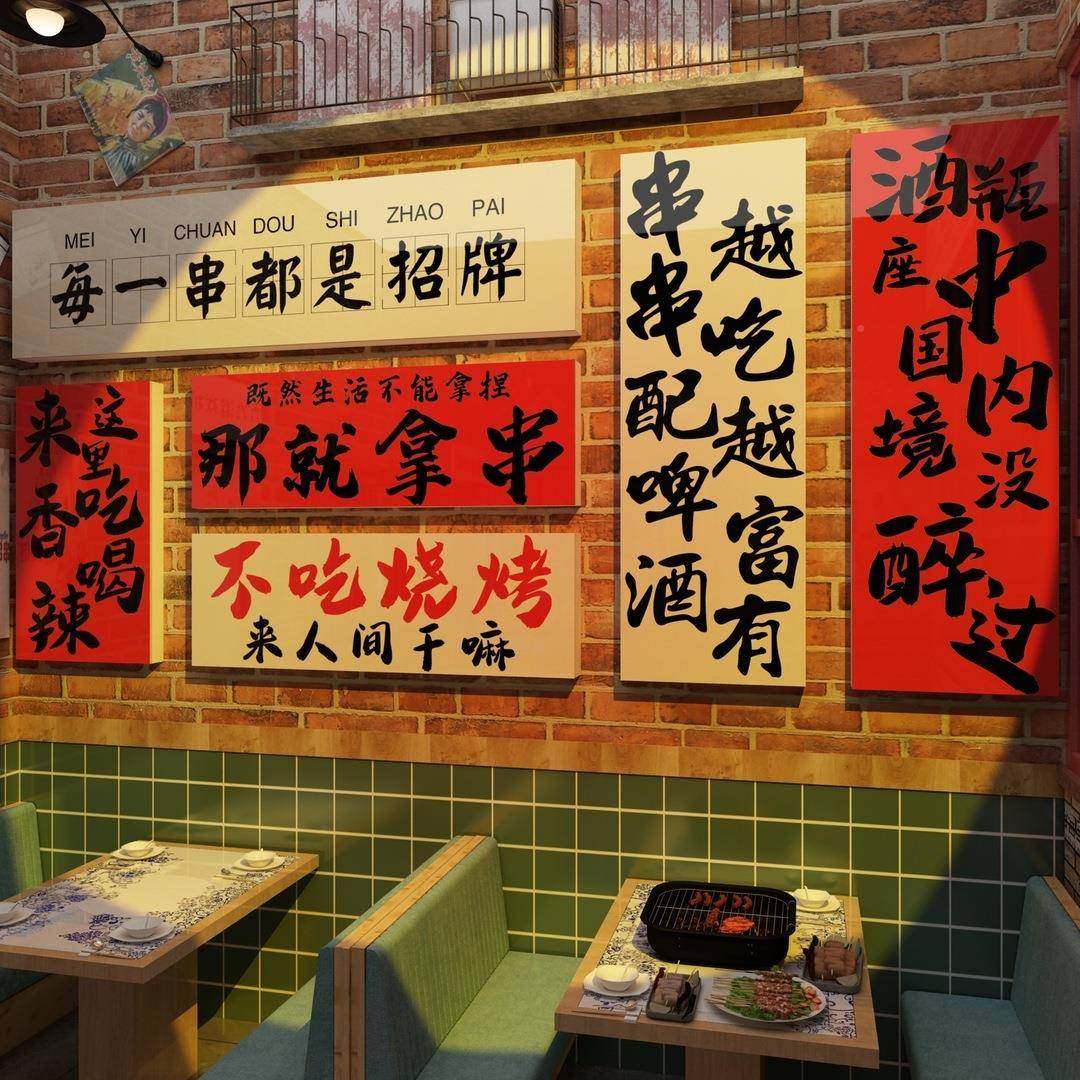 MEI YI CHUAN DOU SHI ZHAO PAI
每一串都是招牌
这里吃喝
来香辣
既然生活不能拿捏
那就拿串
不吃烧烤
来人间干嘛
串串配啤酒
越吃越富有
酒座国境醉
瓶中内没过